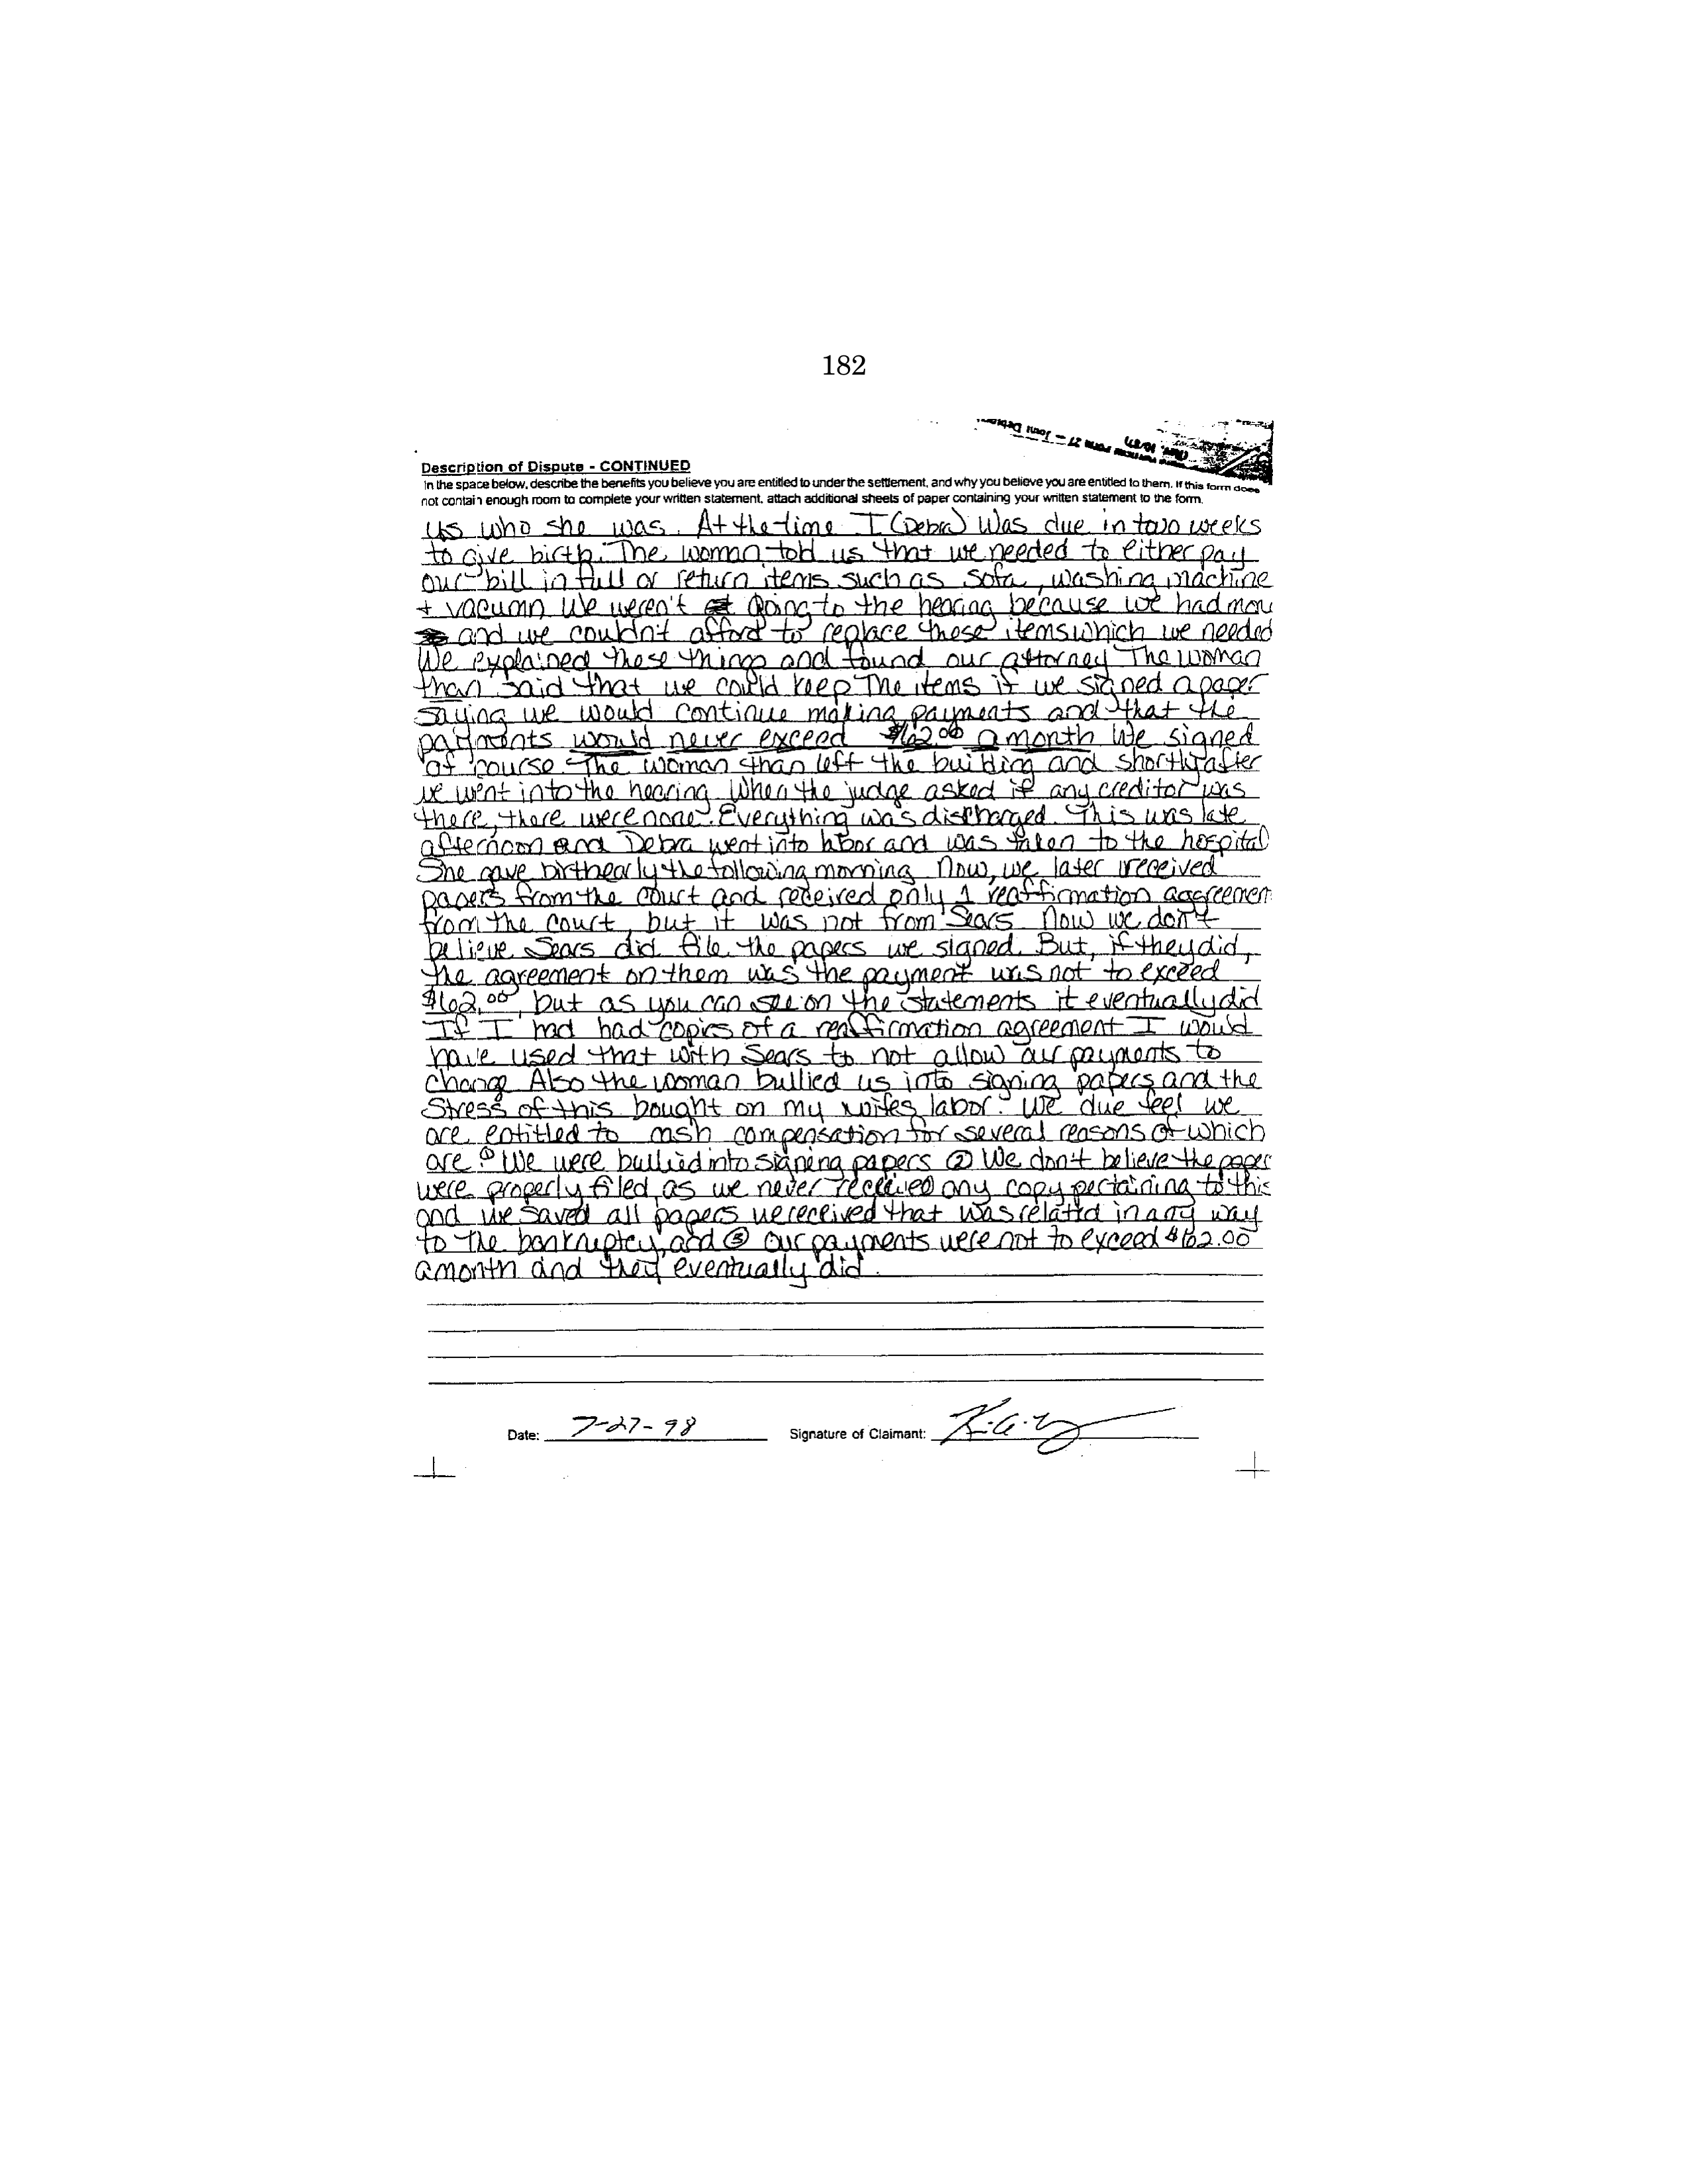 182
Description of Dispute - CONTINUED
In the space below, describe the benefits you believe you are entitled to under the settlement, and why you believe you are entitled to them. If this form does
not contain enough room to complete your written statement, attach additional sheets of paper containing your written statement to the form.
us who she was. At the time I (Debra) was due in two weeks
to give birth. The woman told us that we needed to either pay
our bill in full or return items such as sofa, washing machine
+ vacumn We weren't going to the hearing because we had
and we couldn't afford to replace these items which we needed
We explained these things and found our attorney The woman
than said that we could keep the items if we signed a paper
saying we would continue making payments and that the
payments would never exceed $62.00 a month We signed
of course. The woman than left the building and shortly after
we went into the hearing. When the judge asked if any creditor was
there, there were none. Everything was discharged. This was late
afternoon and Debra went into labor and was taken to the hospital
She gave birth early the following morning. Now, we later received
papers from the court and received only 1 reaffirmation aggreemen
from the court, but it was not from Sears. Now we don't
believe Sears did file the papers we signed. But, if they did,
the agreement on them was the payment was not to exceed
$62.00, but as you can see on the statements it eventually did
If I had had copies of a reaffirmation agreement I would
have used that with Sears to not allow our payments to
change. Also the woman bullied us into signing papers and the
Stress of this bought on my wifes labor. We due feel we
are entitled to cash compensation for several reasons of which
are ① We were bullied into signing papers ② We don't believe the paper
were properly filed, as we never received any copy pertaining to this
and we saved all papers we received that was related in any way
to the bankruptcy, and ③ our payments were not to exceed $62.00
a month and they eventually did.
Date: 7-27-98 Signature of Claimant: